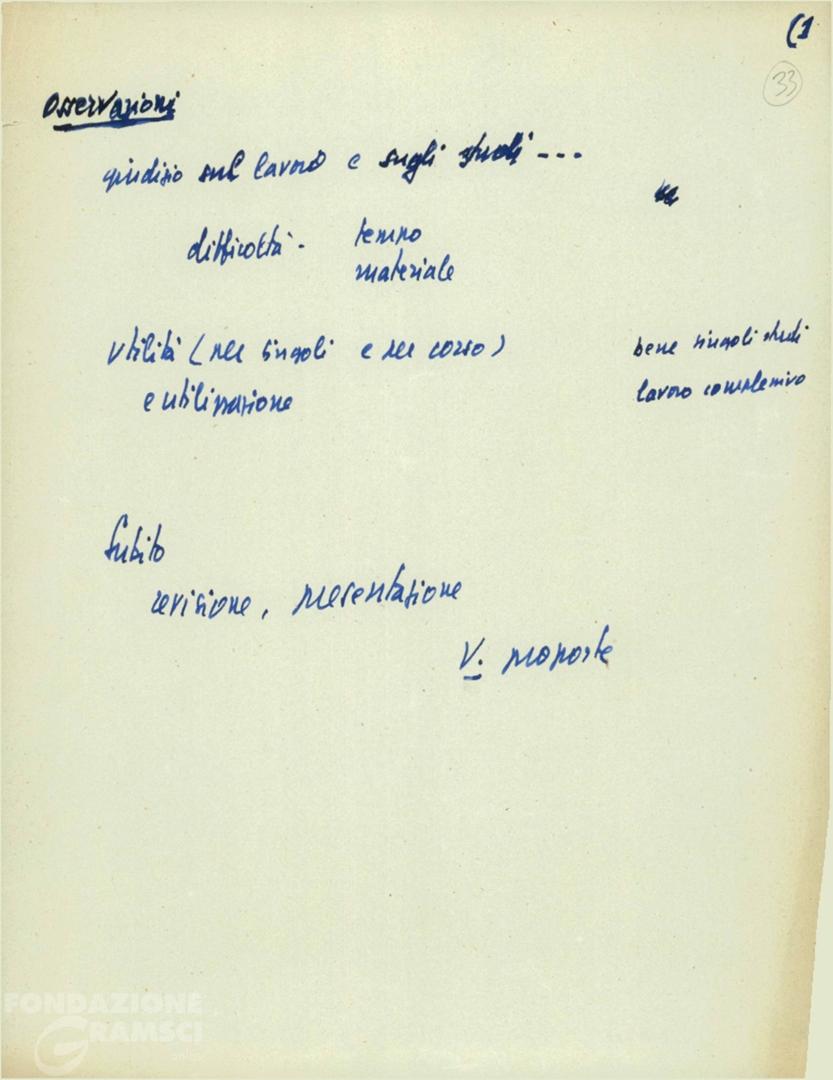 (1
33
Osservazioni
giudizio sul lavoro e sugli studi ---
difficoltà - tempo
materiale
Utilità (per singoli e per corso)
bene singoli studi
e utilizzazione
lavoro complessivo
Subito
revisione, presentazione
V. proposte
FONDAZIONE
GRAMSCI